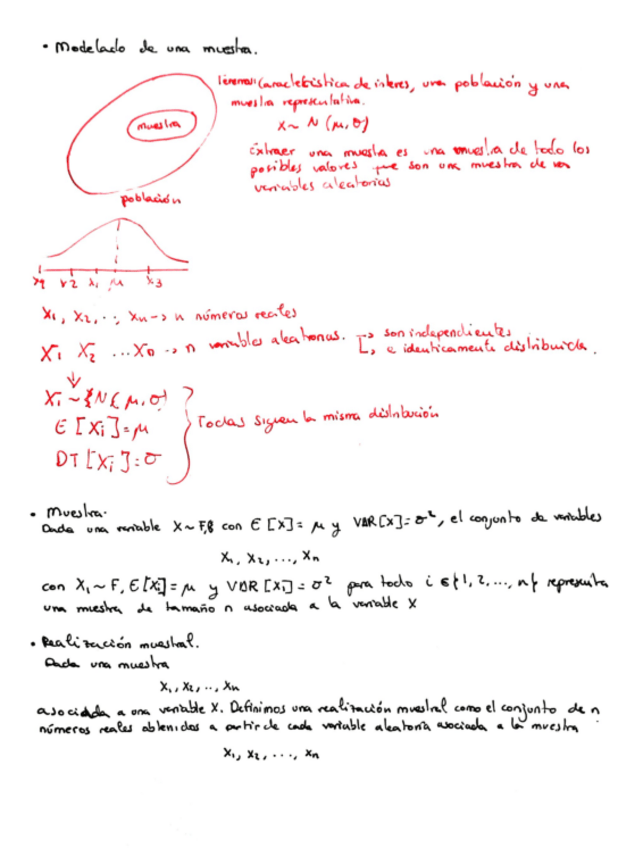 • Modelado de una muestra.
Tenemos: Característica de interes, una población y una
muestra representativa.
muestra
X ~ N (μ, σ)
Extraer una muestra es una muestra de todo los
posibles valores que son una muestra de
variables aleatorias
población
x2 x1 μ x3
x1, x2, ..., xn -> n números reales
X1 X2 ... Xn -> n variables aleatorias. -> son independientes
e identicamente distribuida.
Xi ~ N(μ, σ)
E[Xi] = μ
Todas siguen la misma distribución
DT[Xi] = σ
• Muestra.
Dada una variable X ~ F, con E[X] = μ y VAR[X] = σ², el conjunto de variables
X1, X2, ..., Xn
con Xi ~ F, E[Xi] = μ y VAR[Xi] = σ² para todo i ∈ {1, 2, ..., n} representa
una muestra de tamaño n asociada a la variable X
• Realización muestral.
Dada una muestra
X1, X2, .., Xn
asociada a una variable X. Definimos una realización muestral como el conjunto de n
números reales obtenidos a partir de cada variable aleatoria asociada a la muestra
x1, x2, ..., xn